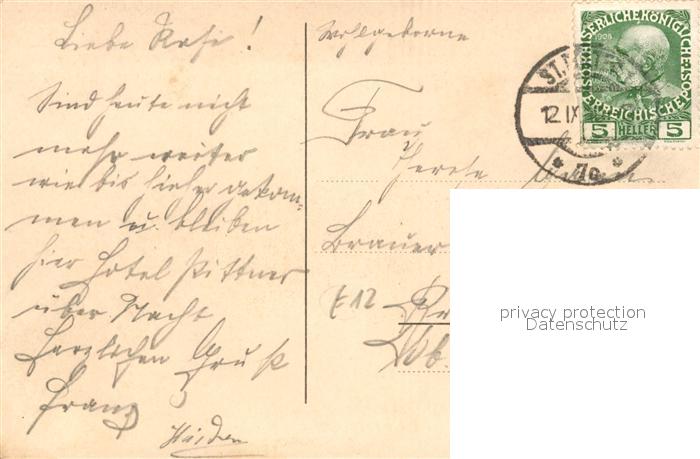 Liebe Resi!
Sind heute nicht
mehr weiter
wie bis hieher gekom-
men u. bleiben
hier Hotel Pittner
über Nacht
Herzlichen Gruß
Franz
Wohlgeborne
Frau
Therese
Brauer
Ob.
ST.
12 IX
* 7c *
KAISERLICHE KÖNIGLICHE
ÖSTERREICHISCHE POST
1908
5 HELLER 5
privacy protection
Datenschutz